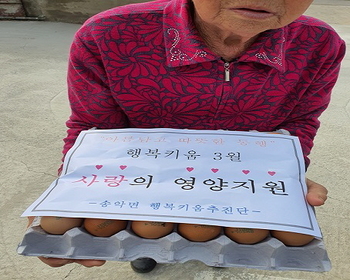 행복키움 3월
사랑의 영양지원
-송악면 행복키움추진단-